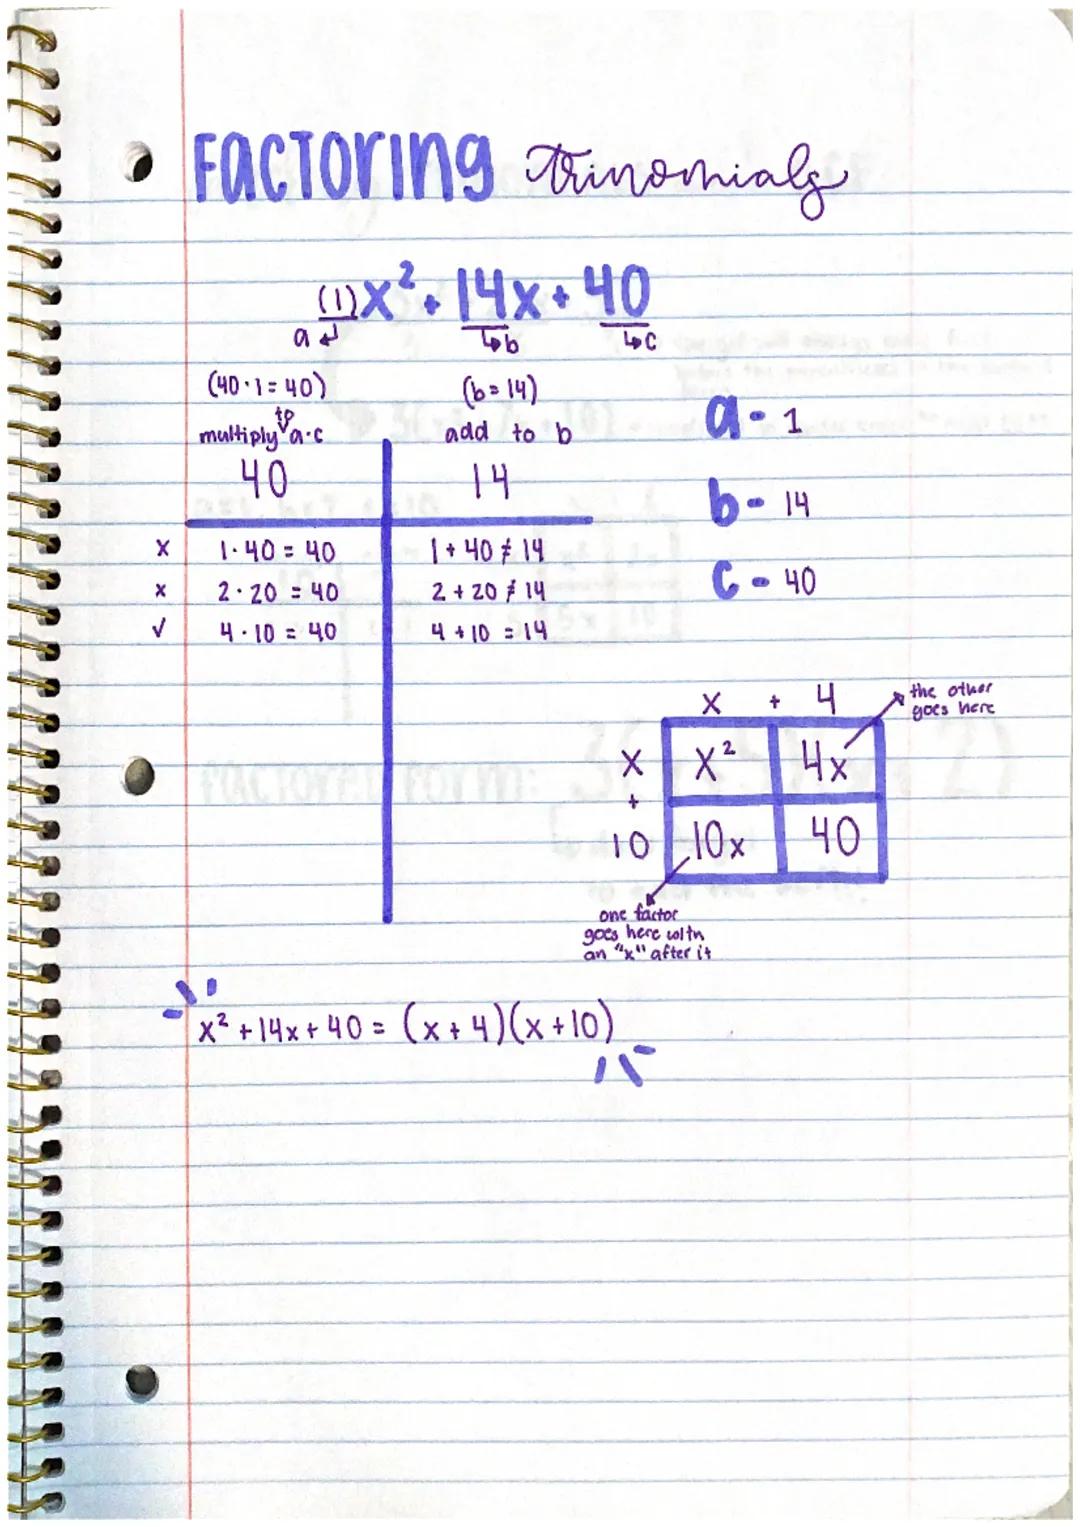 Factoring trinomials
(1)x² + 14x + 40
a b c
(40·1=40) (b=14)
multiply to a·c add to b
40 14
x 1·40=40 1+40≠14
x 2·20=40 2+20≠14
✓ 4·10=40 4+10=14
a - 1
b - 14
c - 40
x + 4
the other
goes here
x x² 4x
+
10 10x 40
one factor
goes here with
an "x" after it
x²+14x+40=(x+4)(x+10)